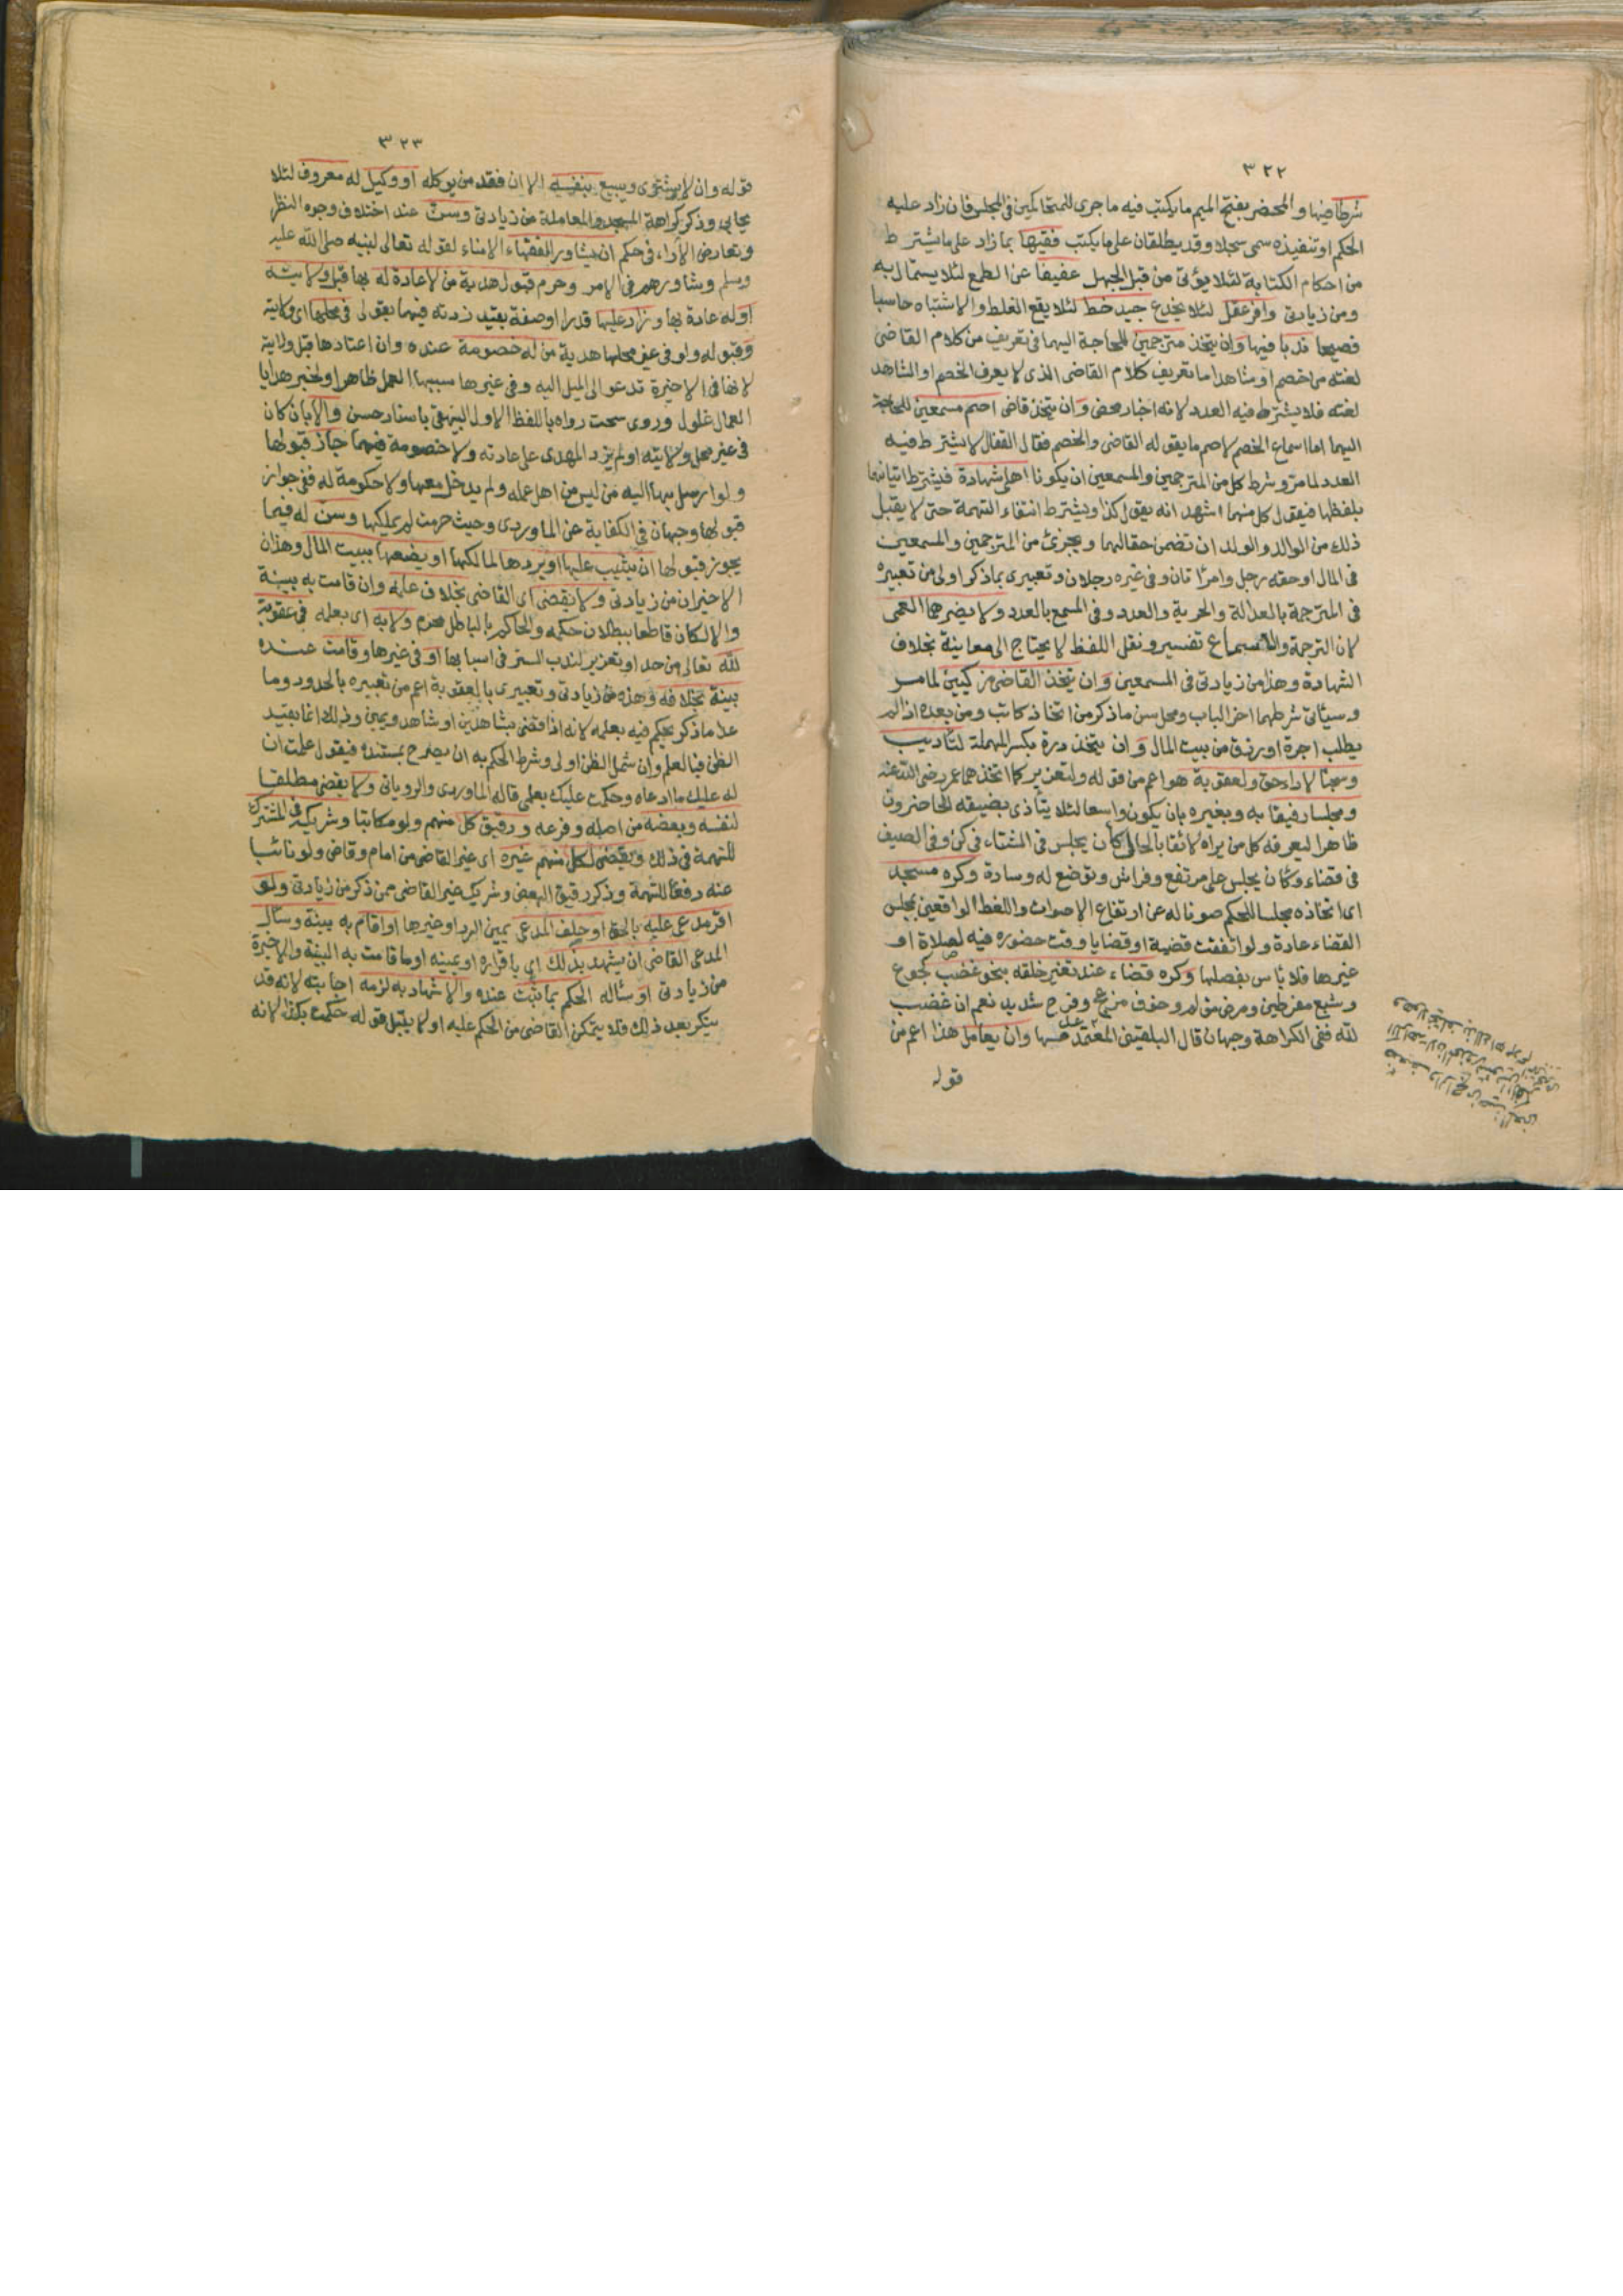 ٣٢٢
شرطا فيها والمحضر بفتح الميم ما يكتب فيه ما جرى للمتحاكمين في المجلس فان زاد عليه
الحكم او تنفيذه سمى سجلا وقد يطلقان على ما يكتب فقيها بما زاد على ما يشترط
من احكام الكتابة لئلا يؤتى من قبل الجهل عفيفا عن الطمع لئلا يستمال به
ومن زيادتى وافر عقل لئلا يخدع جيد خط لئلا يقع الغلط والاشتباه حاسبا
فصيحا ندبا فيها وان يتخذ مترجمين للحاجة اليهما فى تعريف من كلام القاضى
لغته من خصم او شاهد اما تعريف كلام القاضى الذى لا يعرف الخصم او الشاهد
لغته فلا يشترط فيه العدد لانه اخبار محض وان يتخذ قاضى اصم مسمعين للحاجة
اليهما اما اسماع الخصم الاصم ما يقوله القاضى والخصم فقال القفال لا يشترط فيه
العدد لما مر وشرط كل من المترجمين والمسمعين ان يكونا اهلى شهادة فيشترط اتيانهما
بلفظها فيقول كل منهما اشهد انه يقول كذا ويشترط انتفاء التهمة حتى لا يقبل
ذلك من الوالد والولد ان تضمن حقا لهما ويجزئ من المترجمين والمسمعين
فى المال او حقه رجل وامرأتان وفى غيره رجلان وتعبيرى بما ذكر اولى من تعبيره
فى المترجمة بالعدالة والحرية والعدد وفى المسمع بالعدد ولا يضرهما العمى
لان الترجمة والاسماع تفسير ونقل اللفظ لا يحتاج الى معاينة بخلاف
الشهادة وهذا من زيادتى فى المسمعين وان يتخذ القاضى مزكيين لما مر
وسيأتى شرطهما اخر الباب ومحل سن ما ذكر من اتخاذ كاتب ومن بعده اذا لم
يطلب اجرة او رزق من بيت المال وان يتخذ درة بكسر المهملة لتأديب
وسجنا لاداء حق ولعقوبة هو اعم من قوله ولتعزير كما اتخذهما عمر رضى الله عنه
ومجلسا رفيقا به وبغيره بان يكون واسعا لئلا يتأذى بضيقه الحاضرون
ظاهرا ليعرفه كل من يراه لائقا بالحال كأن يجلس فى الشتاء فى كن وفى الصيف
فى فضاء وكأن يجلس على مرتفع وفراش وتوضع له وسادة وكره مسجد
اى اتخاذه مجلسا للحكم صونا له عن ارتفاع الاصوات واللغط الواقعين بمجلس
القضاء عادة ولو اتفقت قضية او قضايا وقت حضوره فيه لصلاة او
غيرها فلا بأس بفصلها وكره قضاء عند تغير خلقه بنحو غضب كجوع
وشبع مفرطين ومرض مؤلم وخوف مزعج وفرح شديد نعم ان غضب
لله ففى الكراهة وجهان قال البلقينى المعتمد عدمها وان يعامل هذا اعم من
قوله
٣٢٣
قوله وان لا يشترى ويبيع بنفسه الا ان فقد من يوكله او وكيل له معروف لئلا
يحابى وذكر كراهة المسجد والمعاملة من زيادتى وسن عند اختلاف وجوه النظر
وتعارض الآراء فى حكم ان يشاور الفقهاء الامناء لقوله تعالى لنبيه صلى الله عليه
وسلم وشاورهم فى الامر وحرم قبول هدية من لا عادة له بها قبل ولايته
او له عادة بها وزاد عليها قدرا او صفة بقيد زدته فيهما بقولى فى محلها اى ولايته
وقبوله ولو فى غير محلها هدية من له خصومة عنده وان اعتادها قبل ولايته
لانها فى الاخيرة تدعو الى الميل اليه وفى غيرها سببها العمل ظاهرا ولخبر هدايا
العمال غلول وروى سحت رواه باللفظ الاول البيهقى باسناد حسن والا بان كان
فى غير محل ولايته او لم يزد المهدى على عادته ولا خصومة فيهما جاز قبولها
ولو ارسل بها اليه من ليس من اهل عمله ولم يدخل معها ولا حكومة له ففى جواز
قبولها وجهان فى الكفاية عن الماوردى وحيث حرمت لم يملكها وسن له فيما
يجوز قبولها ان يثيب عليها او يردها لمالكها او يضعها ببيت المال وهذان
الاخيران من زيادتى ولا يقضى اى القاضى بخلاف علمه وان قامت به بينة
والا لكان قاطعا ببطلان حكمه والحاكم بالباطل محرم ولا به اى بعلمه فى عقوبة
لله تعالى من حد او تعزير لندب الستر فى اسبابها او فى غيرها وقامت عنده
بينة بخلافه وهذه من زيادتى وتعبيرى بالعقوبة اعم من تعبيره بالحدود وما
عدا ما ذكر يحكم فيه بعلمه لانه اذا قضى بشاهدين او شاهد ويمين وذلك انما يفيد
الظن فبالعلم وان شمل الظن اولى وشرط الحكم به ان يصرح بمستنده فيقول علمت ان
له عليك ما ادعاه وحكمت عليك بعلمى قاله الماوردى والرويانى ولا يقضى مطلقا
لنفسه وبعضه من اصله وفرعه ورقيق كل منهم ولو مكاتبا وشريكه فى المشترك
للتهمة فى ذلك ويقضى لكل منهم غيره اى غير القاضى من امام وقاض ولو نائبا
عنه دفعا للتهمة وذكر رقيق البعض وشريك غير القاضى ممن ذكر من زيادتى ولو
اقر مدعى عليه بالحق او حلف المدعى يمين الرد او غيرها او اقام به بينة وسأل
المدعى القاضى ان يشهد بذلك اى باقراره او يمينه او ما قامت به البينة والاخيرة
من زيادتى او سأله الحكم بما ثبت عنده والاشهاد به لزمه اجابته لانه قد
ينكر بعد ذلك فلا يتمكن القاضى من الحكم عليه او لا يقبل قوله حكمت بكذا لانه